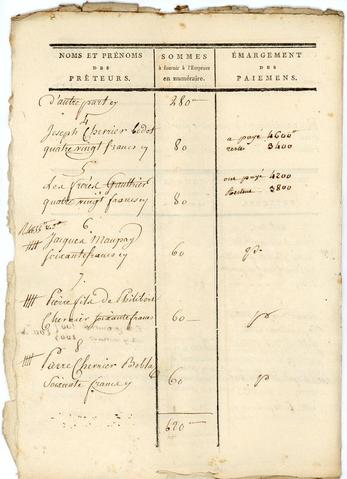 NOMS ET PRÉNOMS
DES
PRÊTEURS.
SOMMES
à fournir à l'Emprunt
en numéraire.
ÉMARGEMENT
DES
PAIEMENS.
D'autre part 280
4
Joseph Chernier
quatre vingt francs 80
a payé 4600
reste 3400
5
des frères Gauthier
quatre vingt francs 80
ont payé 4200
3800
6.
Jacques Maupay
soixante francs 60
7
Pierre fils de Philibert
Chernier soixante francs 60
8
Pierre Chernier
soixante francs 60
620